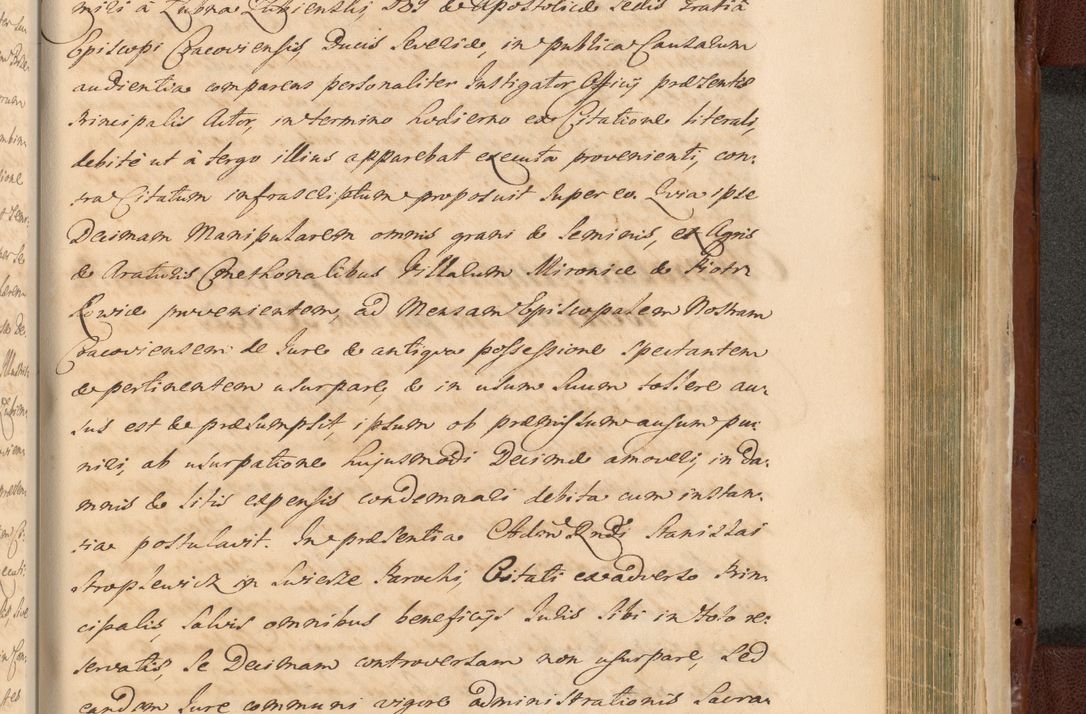 mini à Łubna Łubienski, Dei & Apostolicæ Sedis Gratiâ
Episcopi Cracoviensis, Ducis Severiæ, in publica Causarum
audientia comparens personaliter Instigator Officij præsentis
Principalis Actor, in termino hodierno ex Citatione literali,
debitè ut à tergo illius apparebat executa provenienti, con-
tra Citatum infrascriptum proposuit super eo. Quia ipse
Decimam Manipularem omnis grani & seminis, ex Agris
& Araturis Cmethonalibus Villarum Mironice & Piotr
kowice provenientem, ad Mensam Episcopalem Nostram
Cracoviensem de Jure & antiqua possessione spectantem
& pertinentem usurpare, & in usum suum tollere au-
sus est & præsumpsit, ipsum ob præmissum ausum pu-
niri, ab usurpatione hujusmodi Decimæ amoveri, in da-
mnis & litis expensis condemnari debita cum instan-
tia postulavit. In præsentia Adm Rndi Stanislai
Stroplewicz in Swierze Parochi, Citati ex adverso Prin-
cipalis, salvis omnibus beneficijs Juris sibi in toto re-
servatis, se Decimam controversam non usurpare, sed
eandem Jure communi vigore administrationis Sacra-